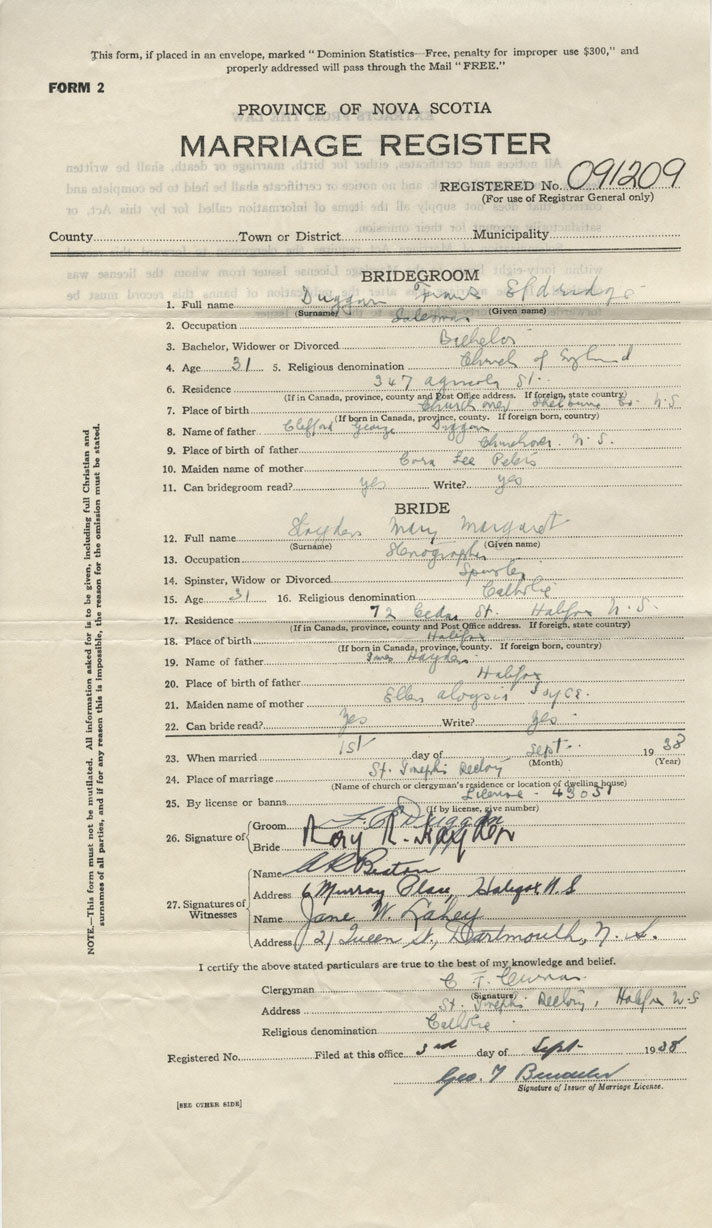 This form, if placed in an envelope, marked "Dominion Statistics—Free, penalty for improper use $300," and
properly addressed will pass through the Mail "FREE."
FORM 2
PROVINCE OF NOVA SCOTIA
MARRIAGE REGISTER
REGISTERED No. 091209
(For use of Registrar General only)
County Town or District Municipality
BRIDEGROOM
1. Full name Duggan Eldridge
(Surname) (Given name)
2. Occupation Salesman
3. Bachelor, Widower or Divorced Bachelor
4. Age 31 5. Religious denomination Church of England
6. Residence 347 Agricola St.
(If in Canada, province, county and Post Office address. If foreign, state country)
7. Place of birth Churchover Shelburne Co. N.S
(If born in Canada, province, county. If foreign born, country)
8. Name of father Clifford George Duggan
9. Place of birth of father Churchover. N.S.
10. Maiden name of mother Cora Lee Peters
11. Can bridegroom read? yes Write? yes
BRIDE
12. Full name Hayden Mary Margaret
(Surname) (Given name)
13. Occupation Stenographer
14. Spinster, Widow or Divorced Spinster
15. Age 31 16. Religious denomination Catholic
17. Residence 72 Cedar St. Halifax N.S.
(If in Canada, province, county and Post Office address. If foreign, state country)
18. Place of birth Halifax
(If born in Canada, province, county. If foreign born, country)
19. Name of father Hayden
20. Place of birth of father Halifax
21. Maiden name of mother Ellen Joyce.
22. Can bride read? Yes Write? Yes
23. When married 1st day of Sept. 1938
(Month) (Year)
24. Place of marriage St. Joseph's Rectory
(Name of church or clergyman's residence or location of dwelling house)
25. By license or banns License - 43051
(If by license, give number)
26. Signature of
Groom F. E. Duggan
Bride Mary M. Hayden
27. Signatures of Witnesses
Name
Address 6 Murray Place, Halifax N.S
Name Jane W. Lahey
Address 21 Queen St., Dartmouth, N.S.
I certify the above stated particulars are true to the best of my knowledge and belief.
Clergyman C. F. Curran
(Signature)
Address St. Joseph's Rectory, Halifax N.S
Religious denomination Catholic
Registered No. Filed at this office 3rd day of Sept. 1938
Geo. T
Signature of Issuer of Marriage License.
[SEE OTHER SIDE]
NOTE.—This form must not be mutilated. All information asked for is to be given, including full Christian and
surnames of all parties, and if for any reason this is impossible, the reason for the omission must be stated.